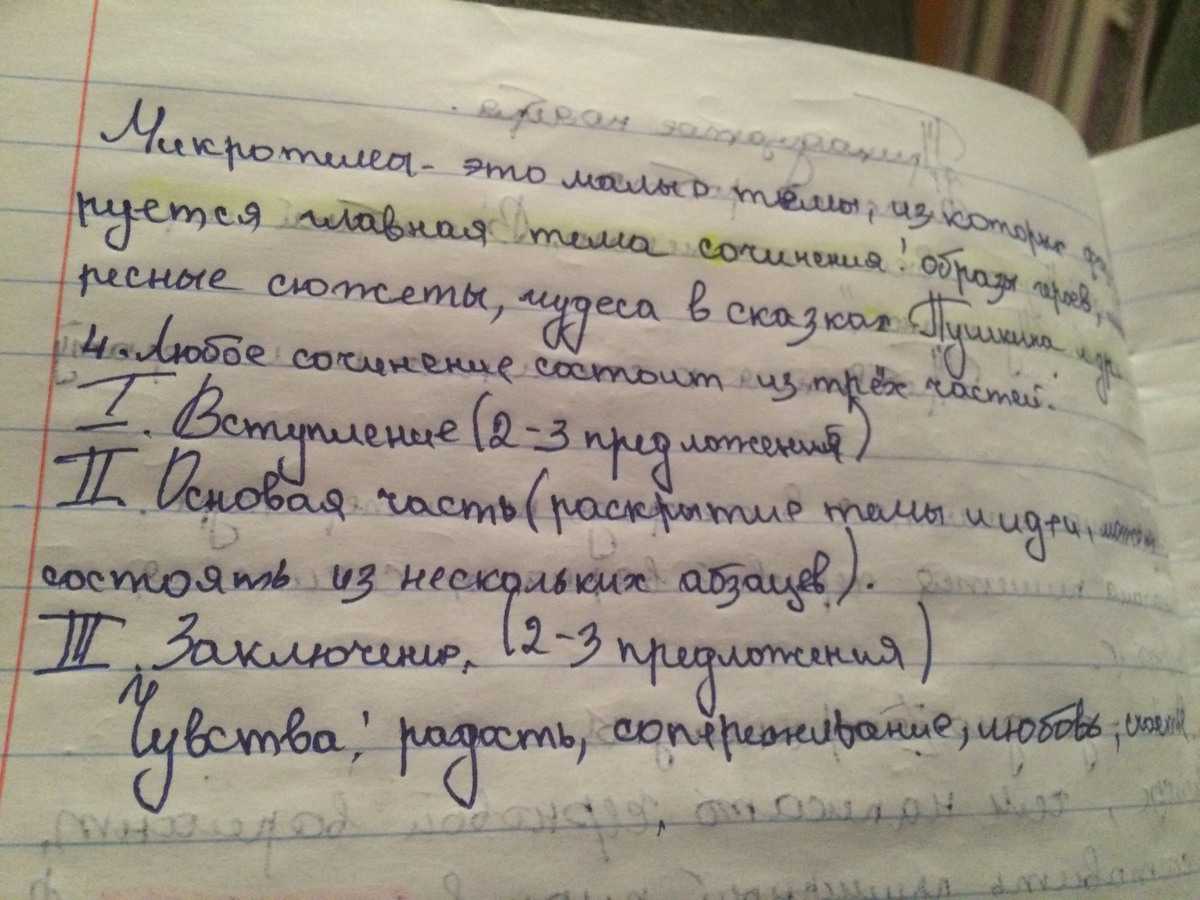 Микротемы - это малые темы, из которых
руется главная тема сочинения: образы героев,
ресные сюжеты, чудеса в сказках Пушкина и др.
4. Любое сочинение состоит из трёх частей.
I. Вступление (2-3 предложения)
II. Основая часть (раскрытие темы и идеи,
состоять из нескольких абзацев).
III. Заключение. (2-3 предложения)
Чувства: радость, сопереживание, любовь,